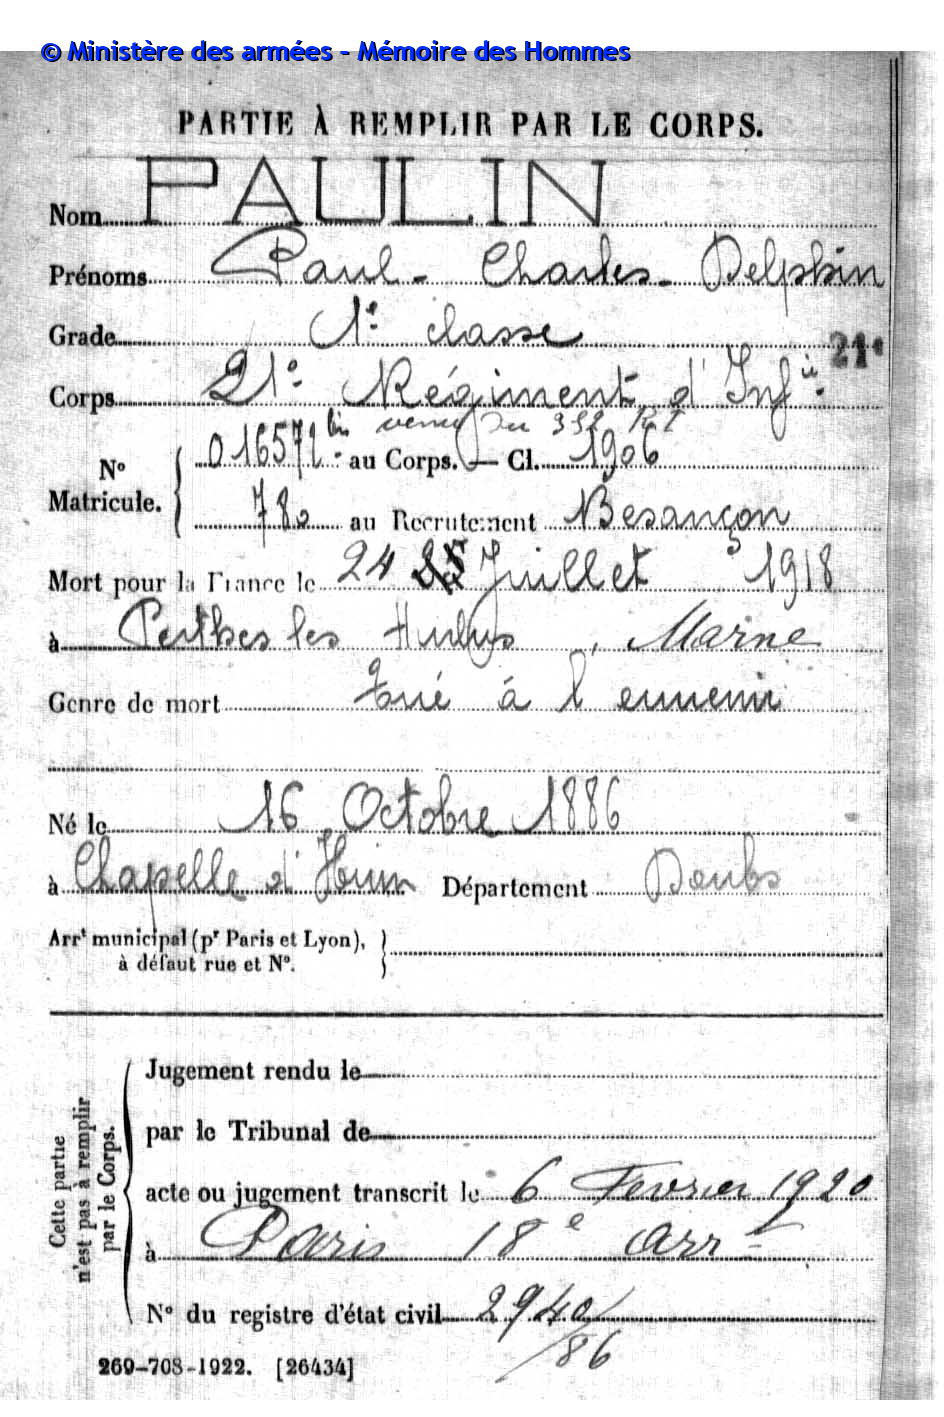 © Ministère des armées - Mémoire des Hommes
PARTIE À REMPLIR PAR LE CORPS.
Nom PAULIN
Prénoms Paul - Charles - Delphin
Grade 1e classe
21e
Corps 21e Régiment d'Infie
venu du 332
No Matricule. 016571 bis au Corps. — Cl. 1906
780 au Recrutement Besançon
Mort pour la France le 24 25 Juillet 1918
à Perthes les Hurlus, Marne
Genre de mort Tué à l'ennemi
Né le 16 Octobre 1886
à Chapelle d'Huin Département Doubs
Arrt municipal (pr Paris et Lyon),
à défaut rue et No.
Cette partie
n'est pas à remplir
par le Corps.
Jugement rendu le
par le Tribunal de
acte ou jugement transcrit le 6 Fevrier 1920
à Paris 18e arrt
No du registre d'état civil 2940/
/86
269-708-1922. [26434]